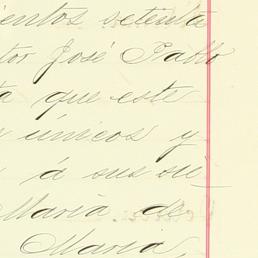 ientos setenta
tor José Pablo
a que este
únicos y
á sus su
Maria de
Maria,